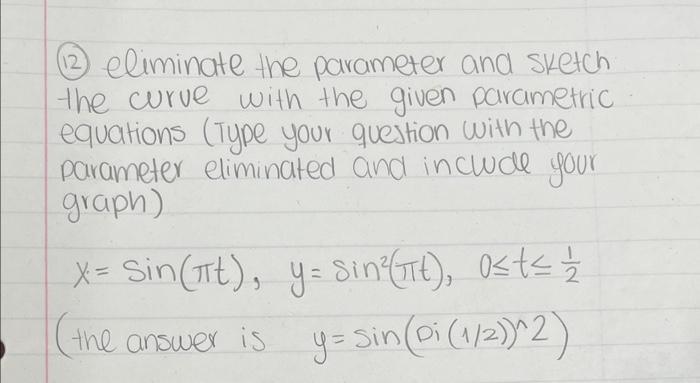 (12) eliminate the parameter and sketch
the curve with the given parametric
equations (Type your question with the
parameter eliminated and include your
graph)
x = sin(πt), y = sin²(πt), 0≤t≤ 1/2
(the answer is y = sin(pi(1/2))^2)